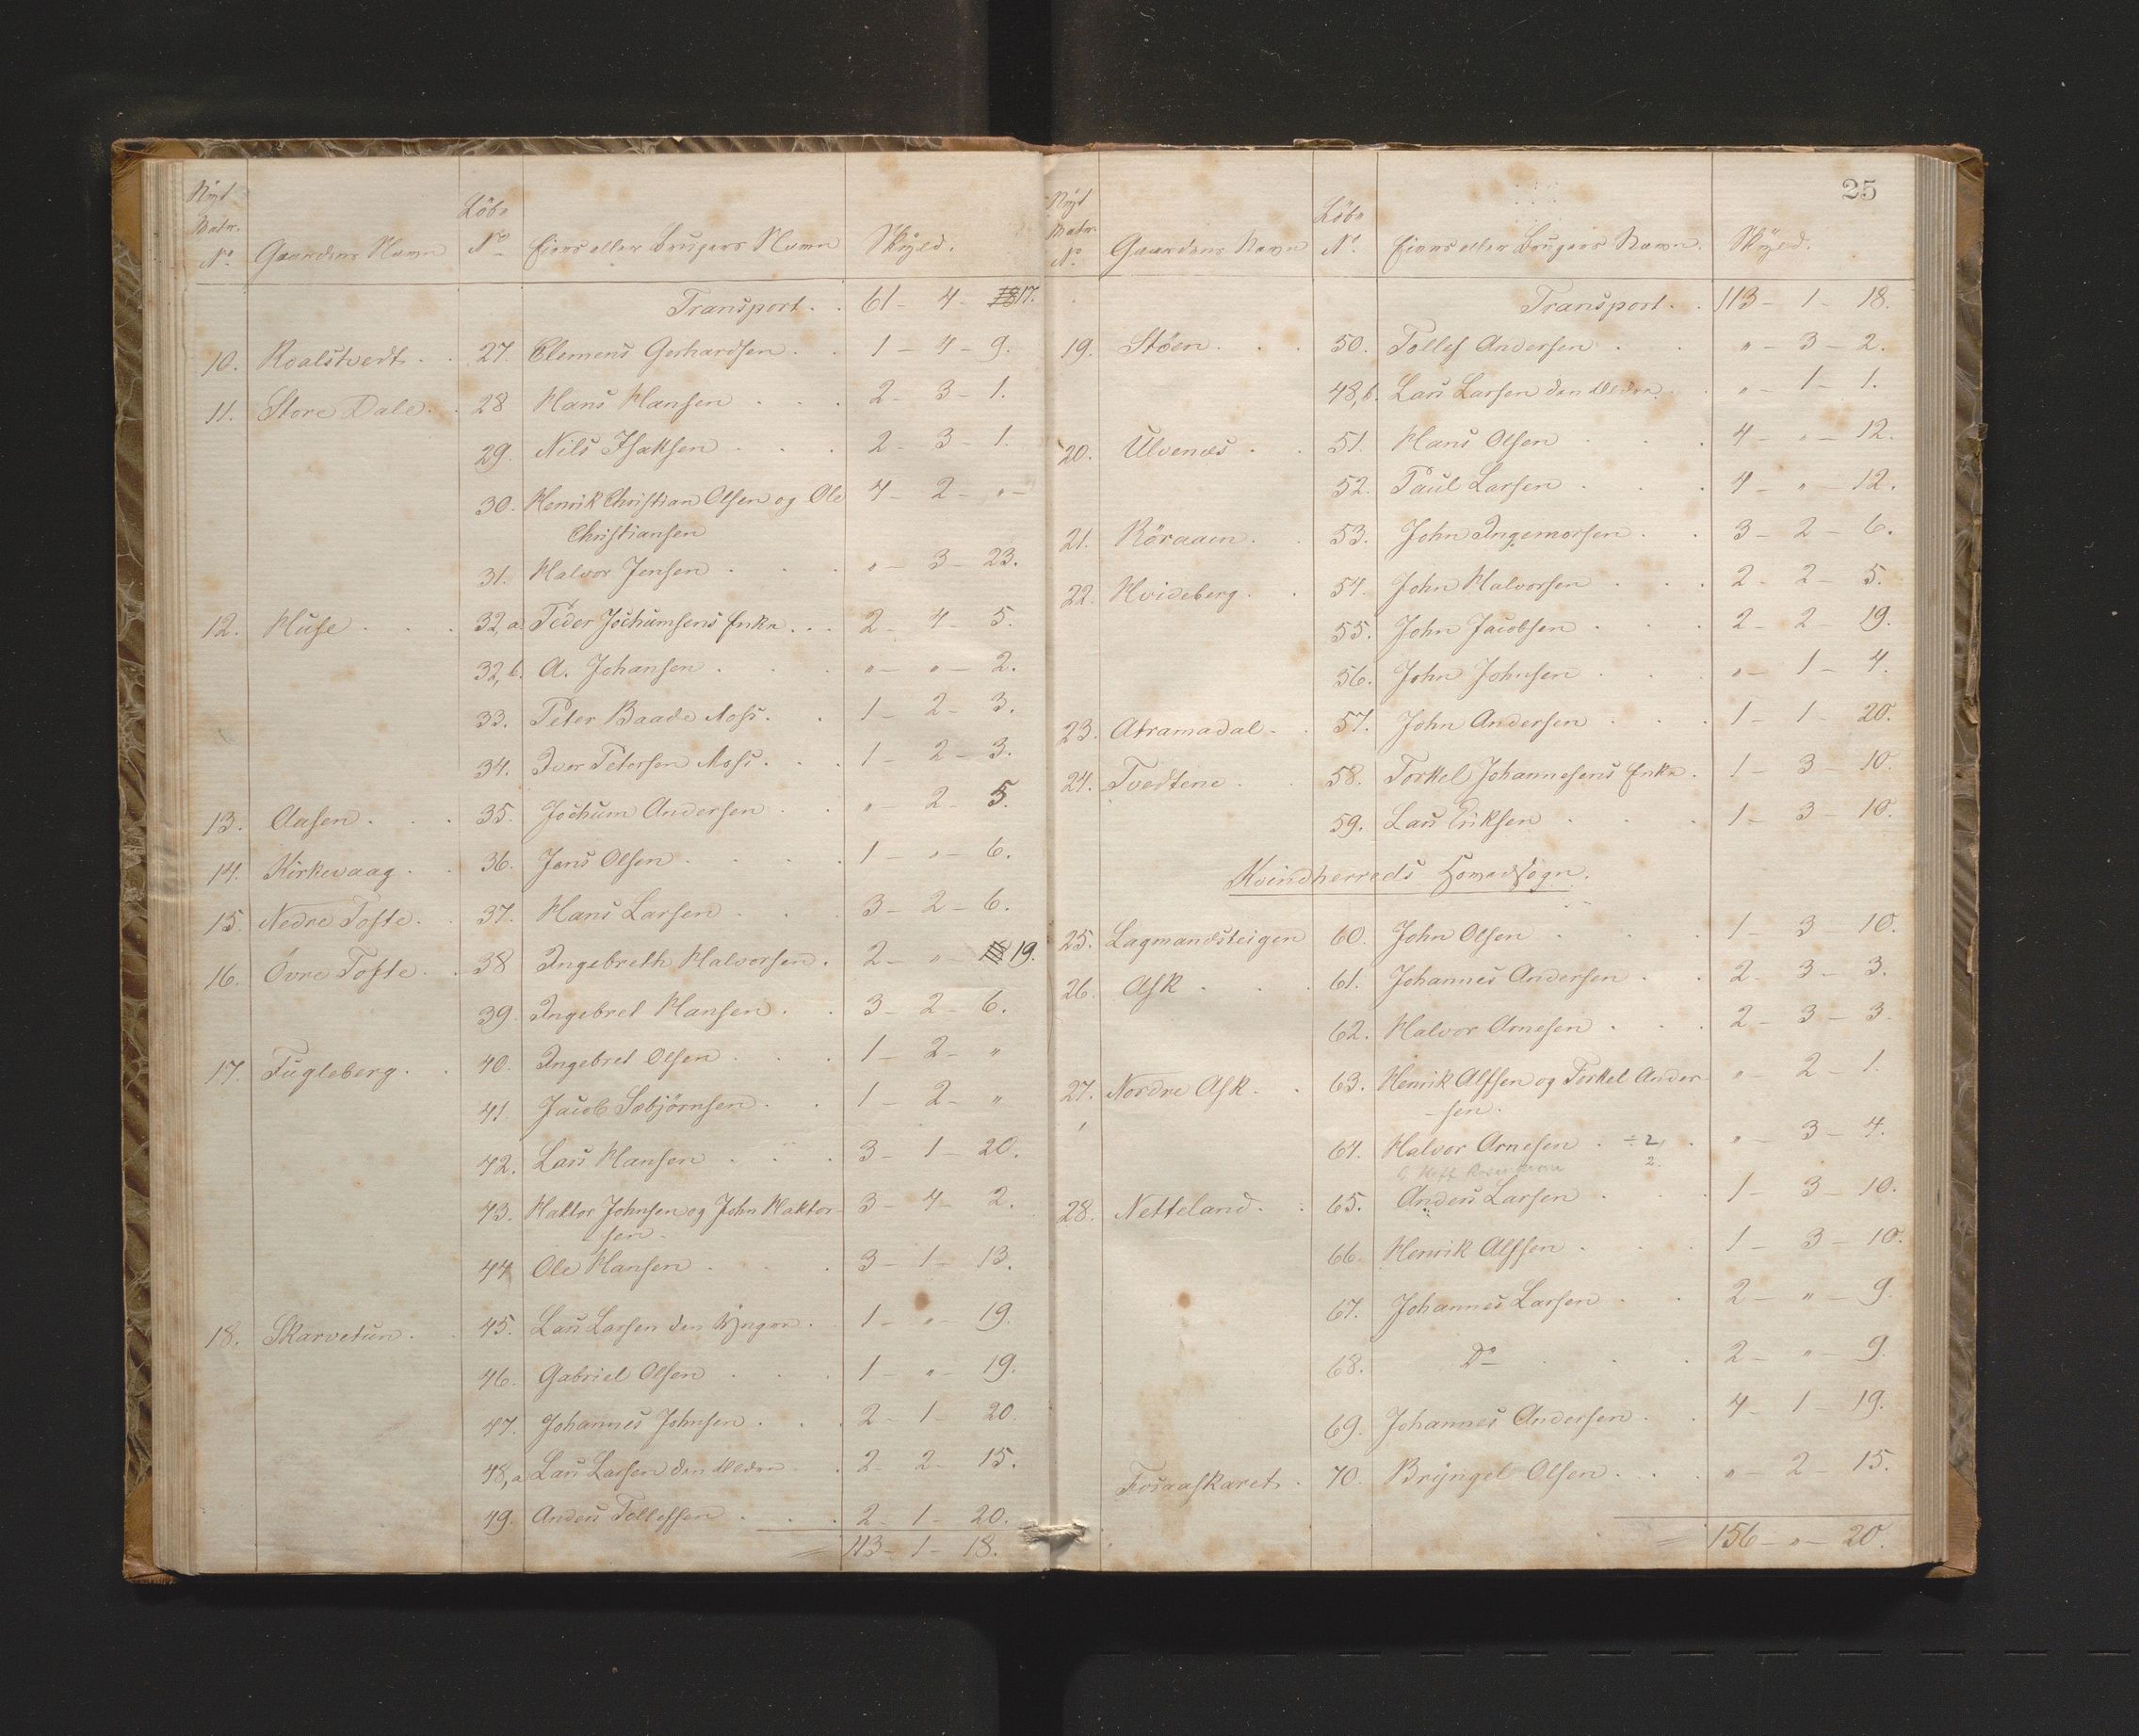 Nyt
Matr. Löb.
No Gaardens Navn No Eiers eller Brugers Navn Skyld.
Transport. . 61 - 4 - 17.
10. Roalstvedt. . 27. Clemens Gerhardsen . . 1 - 4 - 9.
11. Store Dale. . 28 Hans Hansen . . . 2 - 3 - 1.
29. Nils Isaksen . . . 2 - 3 - 1.
30. Henrik Christian Olsen og Ole 4 - 2 - " -
Christiansen
31. Halvor Jensen . . . " - 3 - 23.
12. Huse . . . 32,a. Peder Jochumsens Enke . . . 2 - 4 - 5.
32,b. A. Johansen . . . " - " - 2.
33. Peter Baade Moss. . 1 - 2 - 3.
34. Iver Petersen Moss. . . 1 - 2 - 3.
13. Aasen . . . 35. Jochum Andersen . . " - 2 - 5.
14. Kirkevaag . . 36. Jens Olsen . . . . 1 - " - 6.
15. Nedre Tofte . . 37. Hans Larsen . . . 3 - 2 - 6.
16. Övre Tofte . . 38 Ingebreth Halvorsen . 2 - " - 19.
39. Ingebret Hansen . . 3 - 2 - 6.
17. Fugleberg . . 40. Ingebret Olsen . . . 1 - 2 - "
41. Jacob Sæbjörnsen . . 1 - 2 - "
42. Lars Hansen . . . 3 - 1 - 20.
43. Haktor Johnsen og John Haktor- 3 - 4 - 2.
sen.
44. Ole Hansen . . . 3 - 1 - 13.
18. Skarvetun . . 45. Lars Larsen den Yngre . 1 - " - 19.
46. Gabriel Olsen . . . 1 - " - 19.
47. Johannes Johnsen . . . 2 - 1 - 20.
48,a Lars Larsen den Eldre . 2 - 2 - 15.
49. Anders Tollefsen . . . 2 - 1 - 20.
113 - 1 - 18.
25
Nyt
Matr. Löb.
No Gaardens Navn No Eiers eller Brugers Navn. Skyld.
Transport. . 113 - 1 - 18.
19. Stöen . . . 50. Tollef Andersen . . " - 3 - 2.
48,b. Lars Larsen den Eldre . . " - 1 - 1.
20. Ulvenæs . . 51. Hans Olsen . . . 4 - " - 12.
52. Paul Larsen . . . 4 - " - 12.
21. Röraaen . . 53. John Ingemorsen . . 3 - 2 - 6.
22. Hvideberg . . 54. John Halvorsen . . . 2 - 2 - 5.
55. John Jacobsen . . . 2 - 2 - 19.
56. John Johnsen . . . " - 1 - 4.
23. Atramadal . . 57. John Andersen . . . 1 - 1 - 20.
24. Tvedtene . . 58. Torkel Johannesens Enke . 1 - 3 - 10.
59. Lars Eriksen . . . 1 - 3 - 10.
Kvindherreds Hovedsogn.
25. Lagmandsteigen 60. John Olsen . . . 1 - 3 - 10.
26. Ask . . . 61. Johannes Andersen . . 2 - 3 - 3.
62. Halvor Arnesen . . . 2 - 3 - 3.
27. Nordre Ask . . 63. Henrik Alfsen og Torkel Ander- " - 2 - 1.
-sen.
64. Halvor Arnesen . ÷ 2, . " - 3 - 4.
2.
28. Netteland . . 65. Anders Larsen . . . 1 - 3 - 10.
66. Henrik Alfsen . . . 1 - 3 - 10.
67. Johannes Larsen . . 2 - " - 9.
68. Do . . . 2 - " - 9.
69. Johannes Andersen . . 4 - 1 - 19.
70. Bryngel Olsen . . . " - 2 - 15.
156 - " - 20.